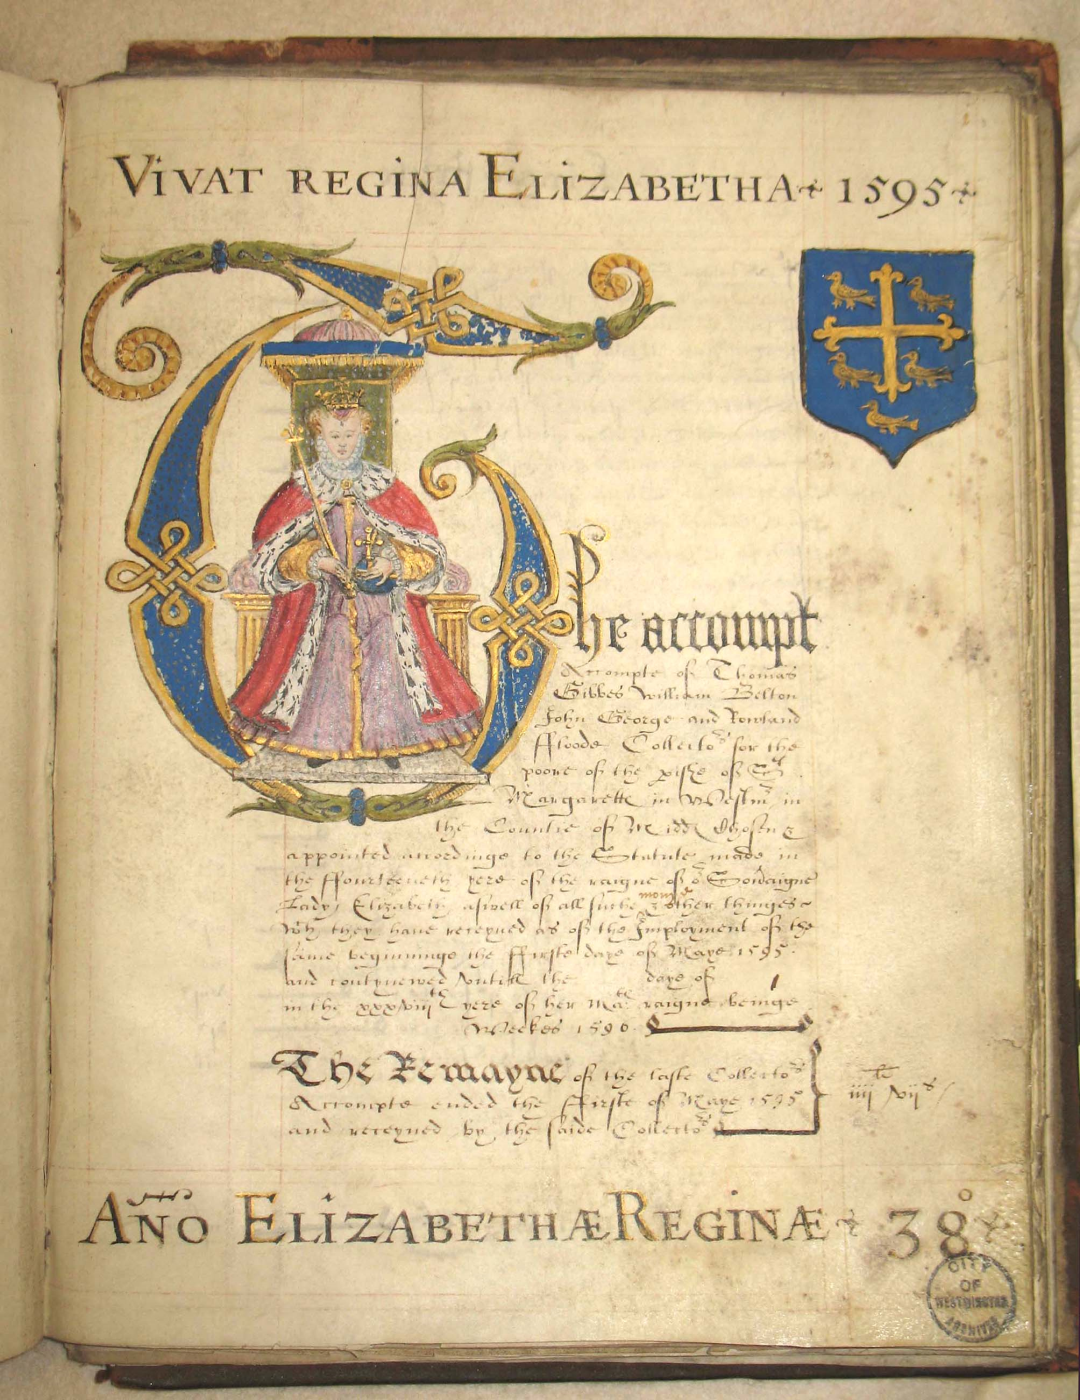 VIVAT REGINA ELIZABETHA 1595
The accompt
Accompte of Thomas
Gibbes William Belton
John George and Rowland
ffloode Collectors for the
poore of the pishe of St
Margarette in Westmr in
the Countie of Midd Chosen &
appointed accordinge to the Statute made in
the ffourteeneth yere of the raigne of or Sovaigne
Lady Elizabeth aswell of all suche money & other thinges
wch they have receyued as of the Imployment of the
same beginninge the ffirste daye of Maye 1595.
and contynewed vntill the daye of
in the xxxviijth yere of her Mats raigne beinge
Weekes 1596
The Remayne of the laste Collectors
Accompte ended the ffirste of Maye 1595
and receyued by the saide Collectors
AÑO ELIZABETHÆ REGINÆ 38o
CITY
OF
WESTMINSTER
ARCHIVES